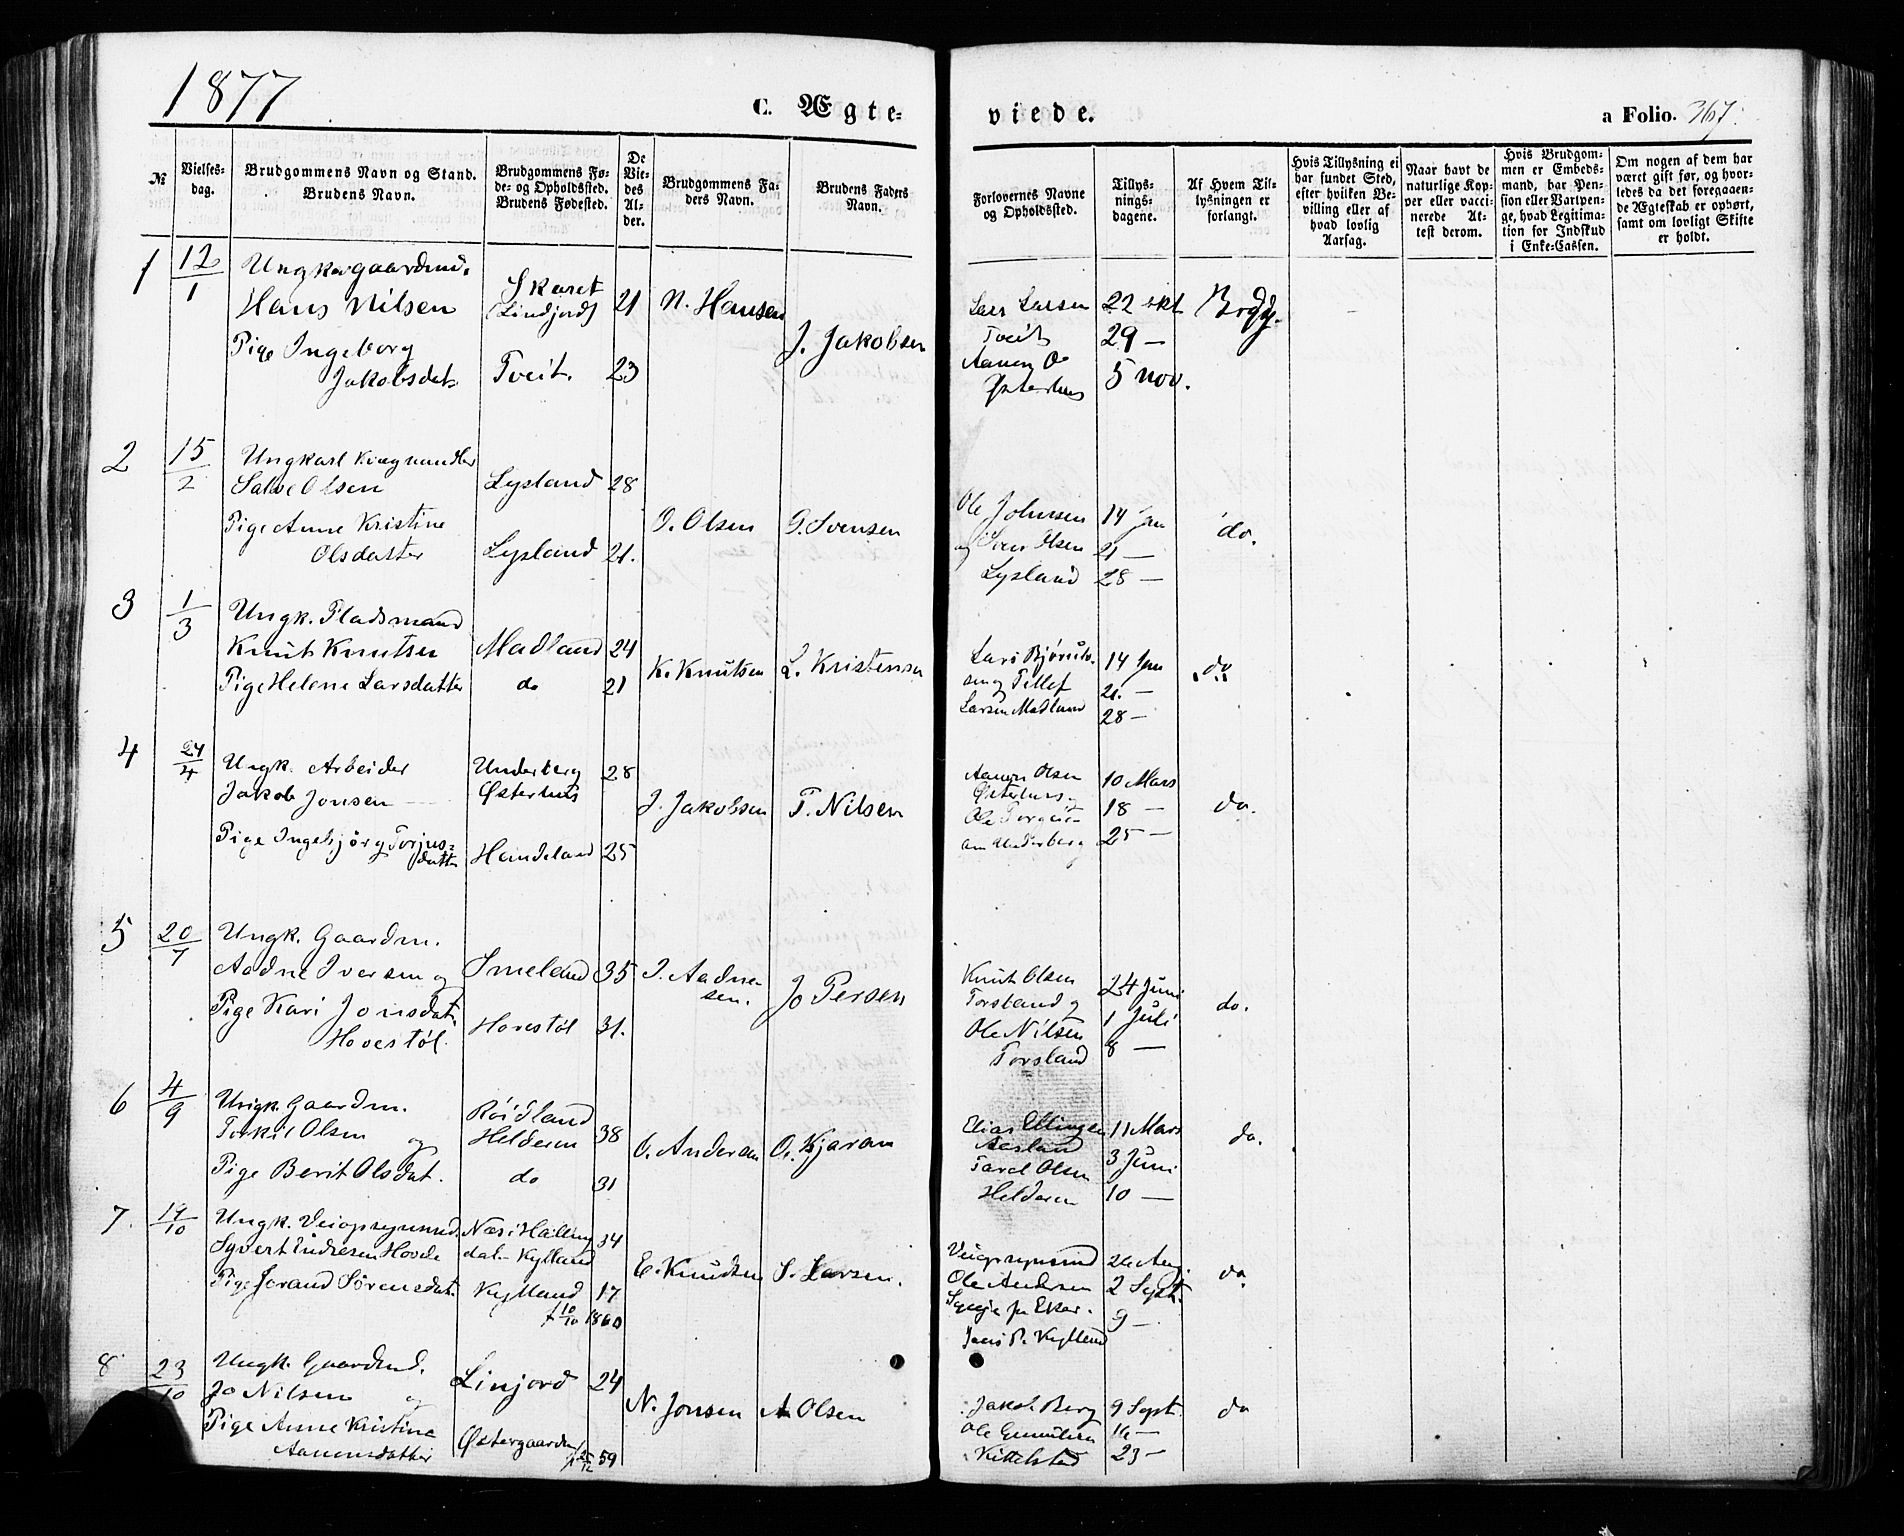 1877
C. Ægte-
viede.
a Folio. 367.
№
Vielses-
dag.
Brudgommens Navn og Stand.
Brudens Navn.
Brudgommens Fø-
de- og Opholdssted.
Brudens Fødested.
De
Vie-
des
Al-
der.
Brudgommens Fa-
ders Navn.
Brudens Faders
Navn.
Forlovernes Navne
og Opholdssted.
Tillys-
nings-
dagene.
Af Hvem Til-
lysningen er
forlangt.
Hvis Tillysning ei
har fundet Sted,
efter hvilken Be-
villing eller af
hvad lovlig
Aarsag.
Naar havt de
naturlige Kop-
per eller vacci-
nerede At-
test derom.
Hvis Brudgom-
men er Embeds-
mand, har Pen-
sion eller Vartpen-
ge, hvad Legitima-
tion for Indskud
i Enke-Cassen.
Om nogen af dem har
været gift før, og hvor-
ledes da det foregaaen-
de Ægteskab er ophørt,
samt om lovligt Skifte
er holdt.
1
12/1
Ungkar gaardmd.
Hans Nilsen
Skaret
(Lindjord)
21
N. Hansen
Pige Ingeborg
Jakobsdat.
Tveit.
23
J. Jakobsen
Lars Larsen
Tveit
Aanen O
Østerhus
22 okt
29 —
5 nov.
Brdg.
2
15/2
Ungkarl
Salve Olsen
Lysland
28
Pige Anne Kristine
Olsdatter
Lysland
21.
O. Olsen
O. Svensen
Ole Johnsen
og Sven Olsen
Lysland
14 Jan
21 —
28 —
do.
3
1/3
Ungk. Pladsmand
Knut Knutsen
Madland
24
Pige Helene Larsdatter
do
21
K. Knutsen
L. Kristensen
Lars
sen og Tellef
Larsen Madland
14 Jan
21. —
28 —
do
4
24/4
Ungk. Arbeider
Jakob Jonsen
Underberg
Østerhus
28
Pige Ingebjørg Torjus-
datter
Handeland
25
J. Jakobsen
T. Nilsen
Aanen Olsen
Østerhus og
Ole
Underberg
10 Mars
18 —
25 —
do.
5
20/7
Ungk. Gaardm.
Aadne Iversen og
Smeland
35
Pige Kari Jonsdat.
Hovestøl.
Hovestøl
31.
I. Aadne-
sen.
Jo Persen
Knut Olsen
Torsland og
Ole Nilsen
Torsland
24 Juni
1 Juli
8 —
do.
6
4/9
Ungk. Gaardm.
Torkil Olsen og
Røidland
Helderen
38
Pige Berit Olsdat.
do
31
O. Andersen
O. Kjaran
Elias Ellingsen
Aasland
Tarel Olsen
Helderen
11 Mars
3 Juni
10 —
do.
7.
19/10
Ungk. Veiopsynsmd.
Syvert Endresen Hovde
Næs i Halling
dal — Kylland
34
Pige Jorand Sørensdat.
Kylland
17
f 10/10 1860
E. Knudsen
S. Larsen.
Veiopsynsmd
Ole Andersen
Eker.
Jens P. Kylland
26 Aug.
2 Sept.
9 —
do
8
23/10
Ungk. Gaardmd.
Jo Nilsen og
Linjord
24
Pige Anne Kristine
Aanensdatter
Østergaarden
59
N. Jonsen
A Olsen
Jakob Berg
Ole Gunuldsen
Kittelstad
9 Sept.
16 —
23 —
do